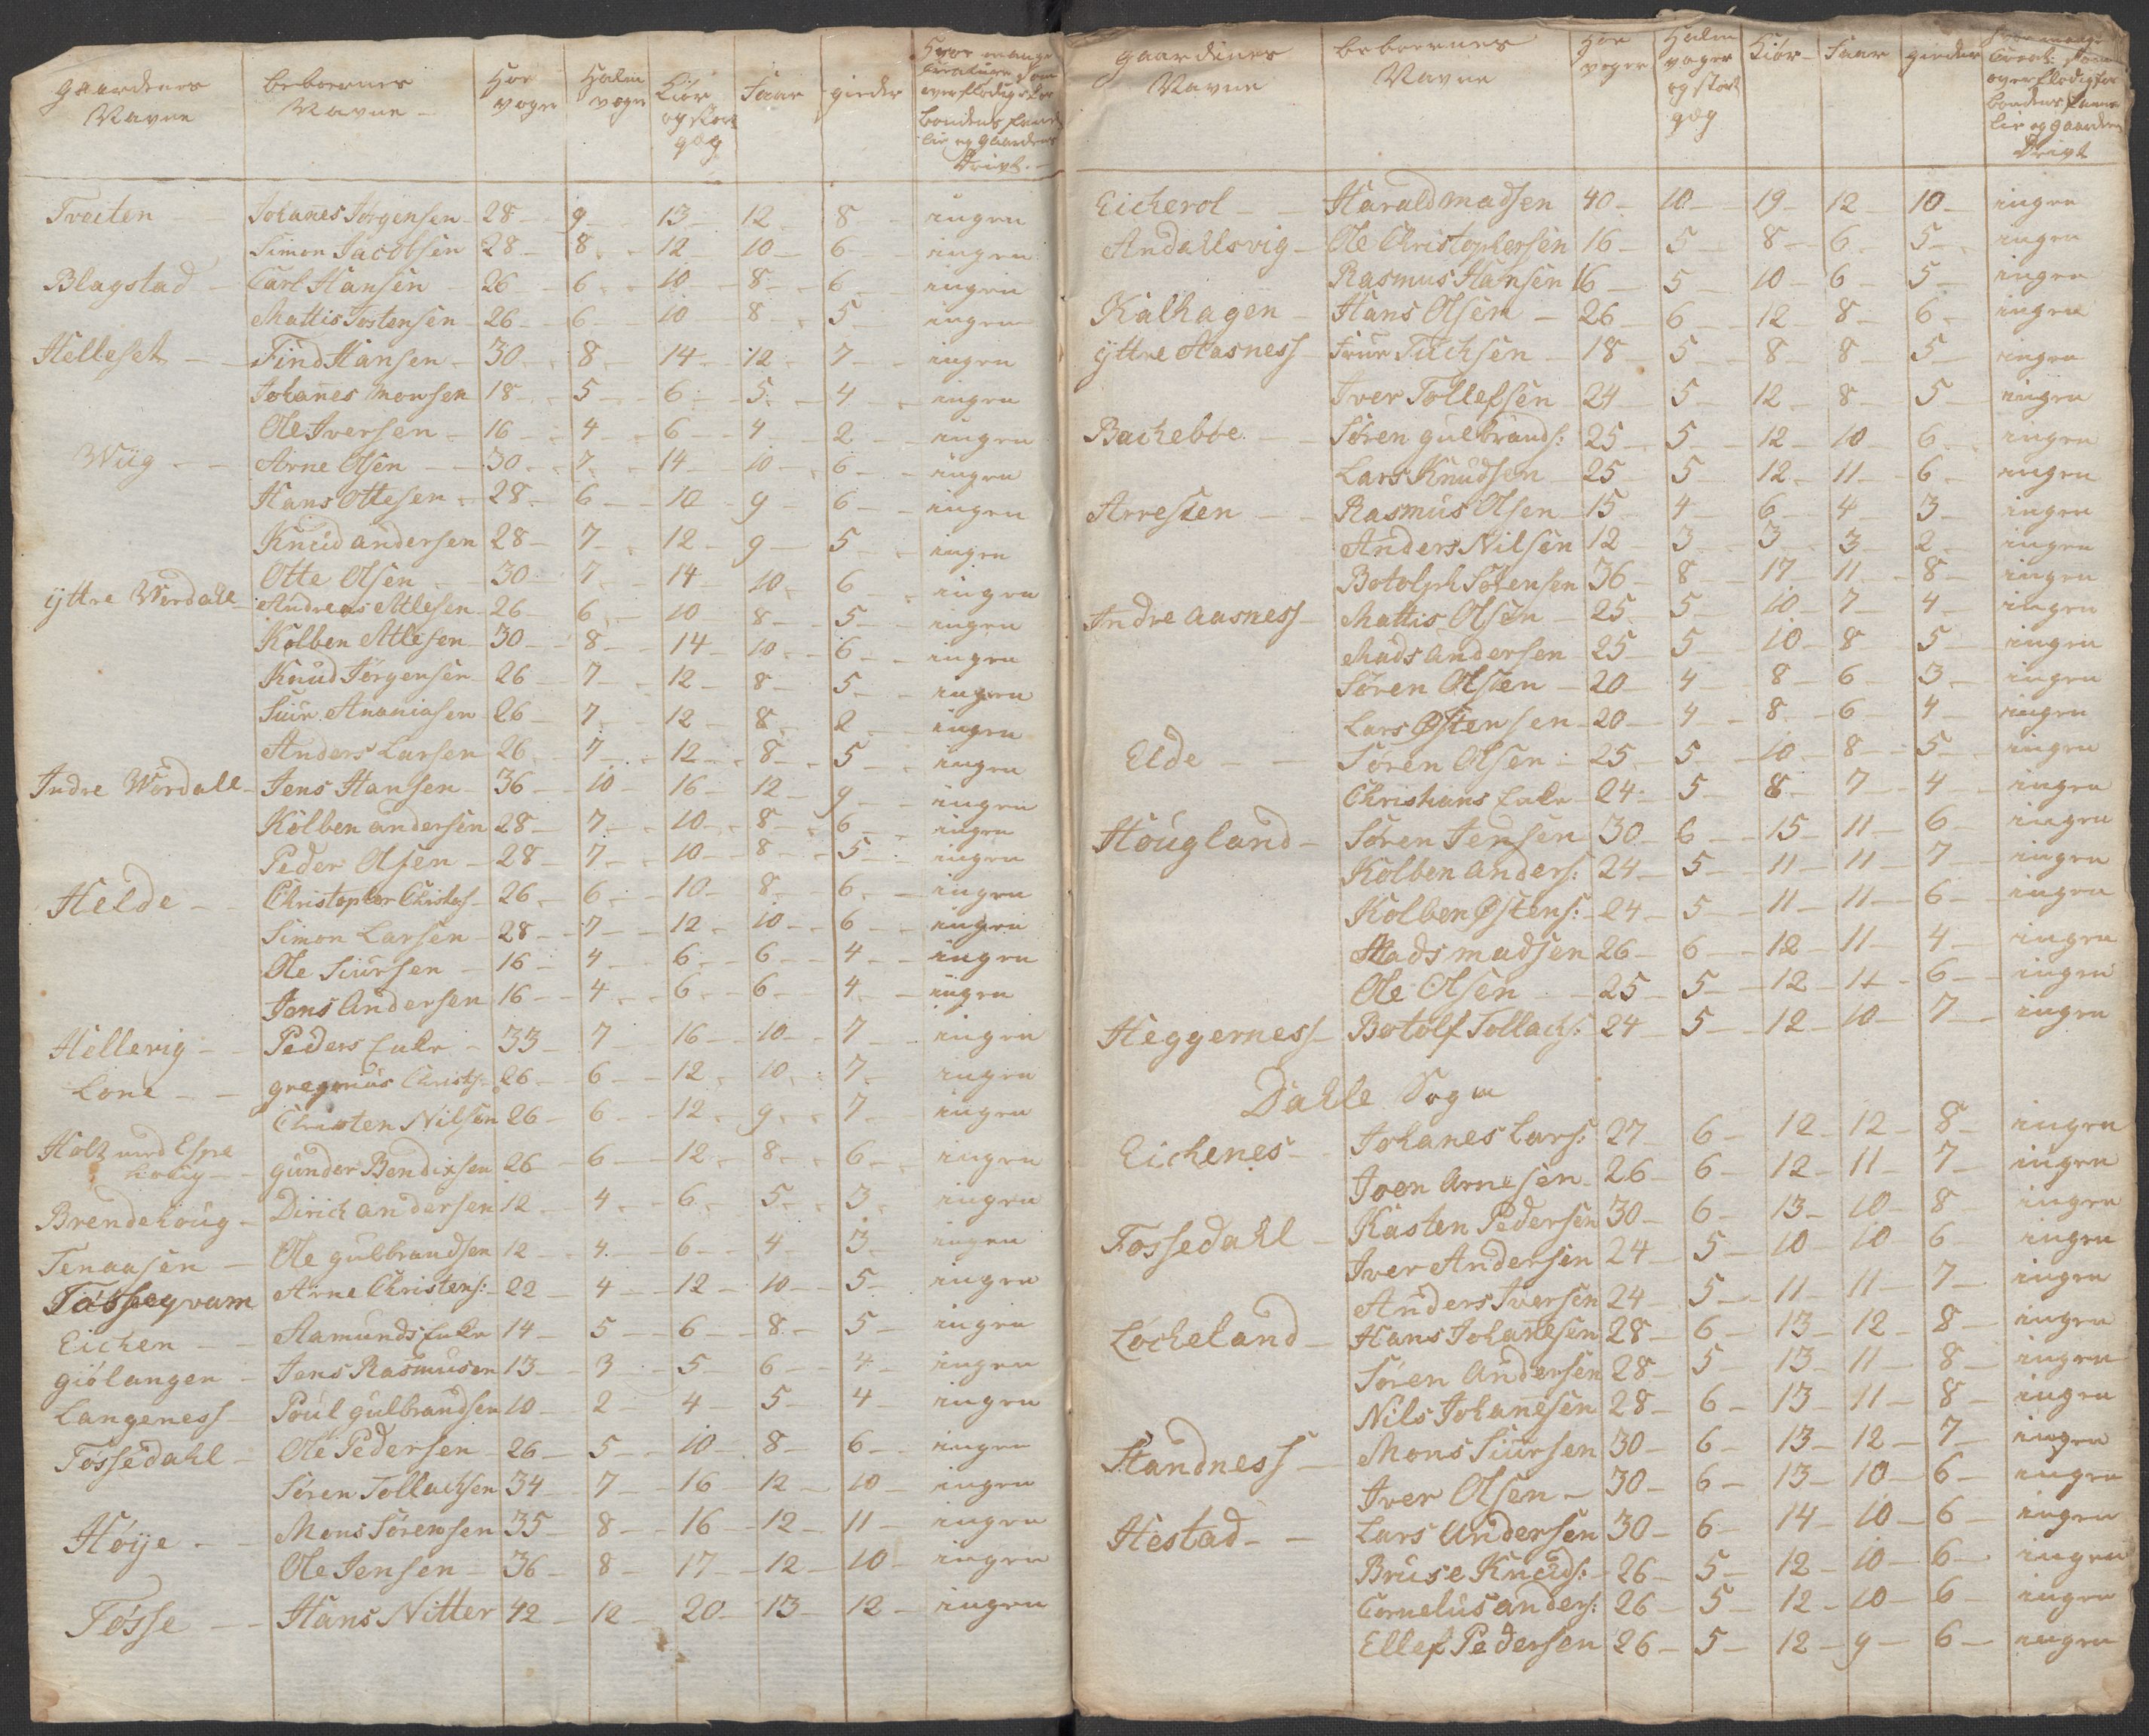 gaardenes Navne | beboernes Navne | Høe voger | Halm voger | Kiør og stort qæg | Faar | gieder | Hvor mange Creature som overflødigt for bondens familie og gaardens Drivt.
Tvæten | Johanes Jörgensen | 28 | 9 | 13 | 12 | 8 | ingen
Simon Jacobsen | 28 | 8 | 12 | 10 | 6 | ingen
Blagstad | Carl Hansen | 26 | 6 | 10 | 8 | 6 | ingen
Mattis Jostensen | 26 | 6 | 10 | 8 | 5 | ingen
Helleset | Find Hansen | 30 | 8 | 14 | 12 | 7 | ingen
Johanes Monsen | 18 | 5 | 6 | 5 | 4 | ingen
Ole Iversen | 16 | 4 | 6 | 4 | 2 | ingen
Wiig | Arne Olsen | 30 | 7 | 14 | 10 | 6 | ingen
Hans Ottesen | 28 | 6 | 10 | 9 | 6 | ingen
Knud andersen | 28 | 7 | 12 | 9 | 5 | ingen
Otte Olsen | 30 | 7 | 14 | 10 | 6 | ingen
ÿttre Werdahl | Andreas Atlesen | 26 | 6 | 10 | 8 | 5 | ingen
Kolben Atlesen | 30 | 8 | 14 | 10 | 6 | ingen
Knud Jörgensen | 26 | 7 | 12 | 8 | 5 | ingen
Siur Ananiasen | 26 | 7 | 12 | 8 | 2 | ingen
Anders Larsen | 26 | 7 | 12 | 8 | 5 | ingen
Indre Wordall | Jens Hansen | 36 | 10 | 16 | 12 | 9 | ingen
Kolben andersen | 28 | 7 | 10 | 8 | 6 | ingen
Peder Olsen | 28 | 7 | 10 | 8 | 5 | ingen
Helde | Christopher Christoph | 26 | 6 | 10 | 8 | 6 | ingen
Simon Larsen | 28 | 7 | 12 | 10 | 6 | ingen
Ole Siursen | 16 | 4 | 6 | 6 | 4 | ingen
Jens Andersen | 16 | 4 | 6 | 6 | 4 | ingen
Hellevig | Peders Enke | 33 | 7 | 16 | 10 | 7 | ingen
Lone | gregorius Christs | 26 | 6 | 12 | 10 | 7 | ingen
Christen Nilsen | 26 | 6 | 12 | 9 | 7 | ingen
Holt med Espe houg | gunder Bendixsen | 26 | 6 | 12 | 8 | 6 | ingen
Brendehoug | Dirich andersen | 12 | 4 | 6 | 5 | 3 | ingen
Tenaasen | Ole gulbrandsen | 12 | 4 | 6 | 4 | 3 | ingen
Tøsseqvam | Arne Christens: | 22 | 4 | 12 | 10 | 5 | ingen
Eichen | Aamunds Enke | 14 | 5 | 6 | 8 | 5 | ingen
giölangen | Jens Rasmusen | 13 | 3 | 5 | 6 | 4 | ingen
Langeness | Poul gulbrandsen | 10 | 2 | 4 | 5 | 4 | ingen
Fossedahl | Ole Pedersen | 26 | 5 | 10 | 8 | 6 | ingen
Sören Tollachsen | 34 | 7 | 16 | 12 | 10 | ingen
Høije | Mons Sörensen | 35 | 8 | 16 | 12 | 11 | ingen
Ole Jensen | 36 | 8 | 17 | 12 | 10 | ingen
Tøsse | Hans Nitter | 42 | 12 | 20 | 13 | 12 | ingen
gaardenes Navne | beboernes Navne | Høe voger | Halm voger og stort qæg | Kiör | Faar | gieder | Hvor mange Creat: som overflødig for bondens familie og gaardens Drigt
Eicherol | Harald Madsen | 40 | 10 | 19 | 12 | 10 | ingen
Andallsvig | Ole Christophersen | 16 | 5 | 8 | 6 | 5 | ingen
Rasmus Hansen | 16 | 5 | 10 | 6 | 5 | ingen
Kalhagen | Hans Olsen | 26 | 6 | 12 | 8 | 6 | ingen
ÿttre Aasness | Siur Tuchsen | 18 | 5 | 8 | 8 | 5 | ingen
Iver Tollefsen | 24 | 5 | 12 | 8 | 5 | ingen
Bachebøe | Sören gulbrands: | 25 | 5 | 12 | 10 | 6 | ingen
Lars Knudsen | 25 | 5 | 12 | 11 | 6 | ingen
Arresten | Rasmus Olsen | 15 | 4 | 6 | 4 | 3 | ingen
Anders Nilsen | 12 | 3 | 3 | 3 | 2 | ingen
Botolph Sörensen | 36 | 8 | 17 | 11 | 8 | ingen
Indre aasness | Mattis Olsen | 25 | 5 | 10 | 7 | 4 | ingen
Mads andersen | 25 | 5 | 10 | 8 | 5 | ingen
Sören Olsen | 20 | 4 | 8 | 6 | 3 | ingen
Lars Østensen | 20 | 4 | 8 | 6 | 4 | ingen
Elde | Sören Olsen | 25 | 5 | 10 | 8 | 5 | ingen
Christians Enke | 24 | 5 | 8 | 7 | 4 | ingen
Hougland | Sören Jensen | 30 | 6 | 15 | 11 | 6 | ingen
Kolben anders: | 24 | 5 | 11 | 11 | 7 | ingen
Kolben Østens: | 24 | 5 | 11 | 11 | 6 | ingen
Mads madsen | 26 | 6 | 12 | 11 | 4 | ingen
Ole Olsen | 25 | 5 | 12 | 11 | 6 | ingen
Heggerness | Botolf Tollachs: | 24 | 5 | 12 | 10 | 7 | ingen
Dahle Sogn
Eichenes | Johanes Lars: | 27 | 6 | 12 | 12 | 8 | ingen
Iven Arnesen | 26 | 6 | 12 | 11 | 7 | ingen
Fossedahl | Kasten Pedersen | 30 | 6 | 13 | 10 | 8 | ingen
Iver Andersen | 24 | 5 | 10 | 10 | 6 | ingen
Anders Iversen | 24 | 5 | 11 | 11 | 7 | ingen
Løcheland | Hans Johanesen | 28 | 6 | 13 | 12 | 8 | ingen
Sören Andersen | 28 | 5 | 13 | 11 | 8 | ingen
Nils Johanesen | 28 | 6 | 13 | 11 | 8 | ingen
Standness | Mons Siursen | 30 | 6 | 13 | 12 | 7 | ingen
Iver Olsen | 30 | 6 | 13 | 10 | 6 | ingen
Hestad | Lars Andersen | 30 | 6 | 14 | 10 | 6 | ingen
Bruse Knuds: | 26 | 5 | 12 | 10 | 6 | ingen
Cornelus anders: | 26 | 5 | 12 | 10 | 6 | ingen
Ellef Pedersen | 26 | 5 | 12 | 9 | 6 | ingen